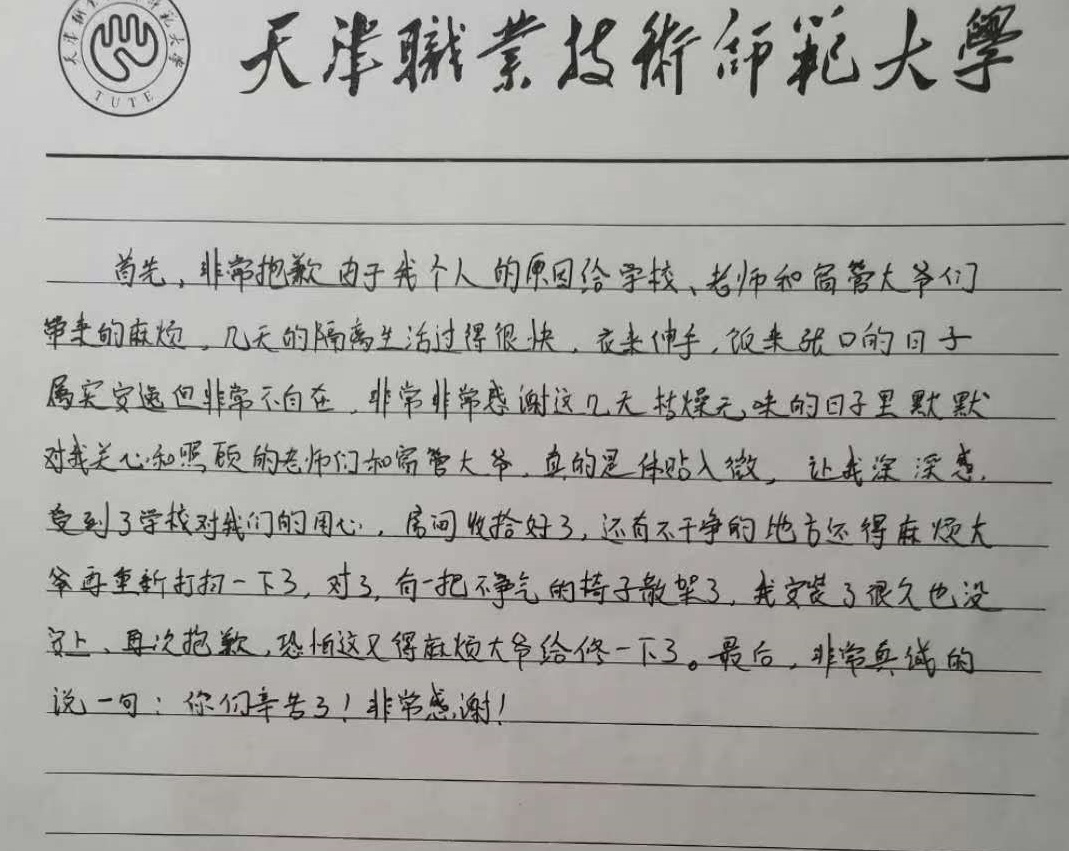 天津職業技術師範大學
TUTE
首先，非常抱歉由于我个人的原因给学校、老师和宿管大爷们
带来的麻烦，几天的隔离生活过得很快，衣来伸手，饭来张口的日子
属实安逸但非常不自在，非常非常感谢这几天枯燥无味的日子里默默
对我关心和照顾的老师们和宿管大爷，真的是体贴入微，让我深深感
受到了学校对我们的用心，房间收拾好了，还有不干净的地方还得麻烦大
爷再重新打扫一下了，对了，有一把不争气的椅子散架了，我安装了很久也没
安上，再次抱歉，恐怕这又得麻烦大爷给修一下了。最后，非常真诚的
说一句：你们辛苦了！非常感谢！